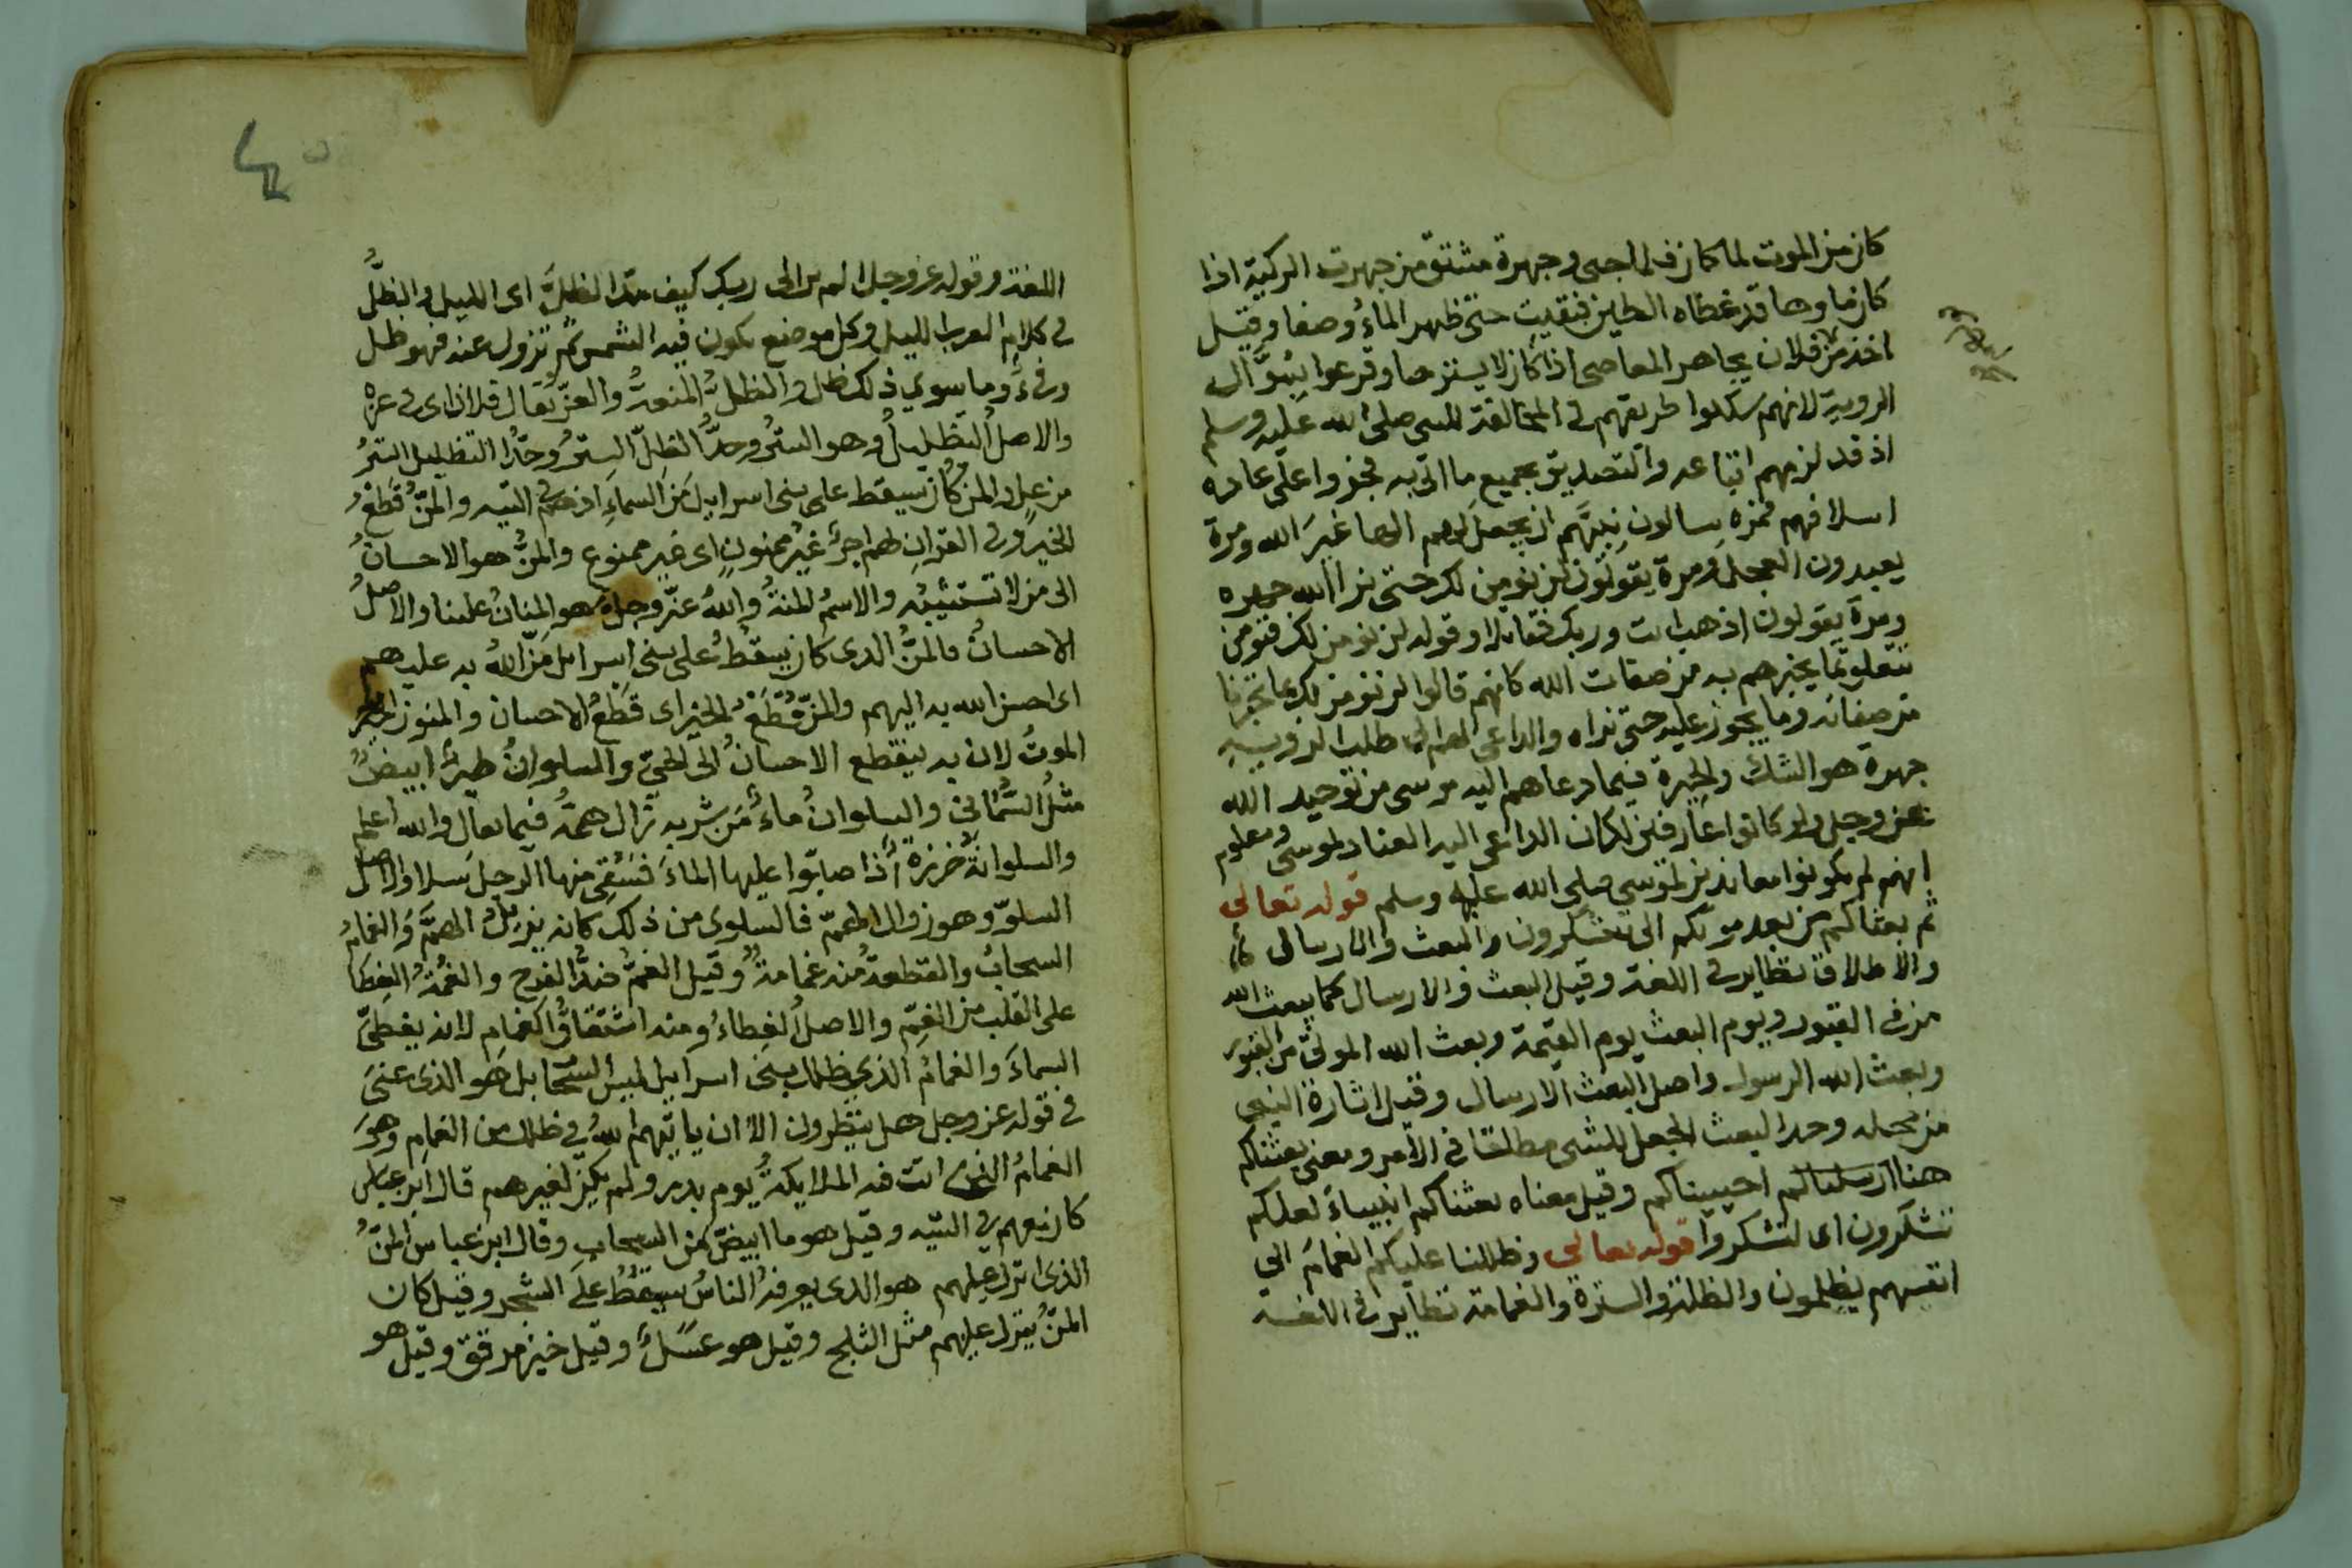 كان من الموت لما كان في الماجى وجهرة مشتق من جهرت الركية اذا
كان ماوها قد غطاه الطين فنقيت حتى ظهر الماءُ وصفا وقيل
اخذ من فلان يجاهر المعاصى اذا كان لا يستترها وقرعوا بسُوَّال
الروية لانهم سكلوا طريقهم في المخالفة للنبى صلى الله عليه وسلم
اذ قد لزمهم اتباعه والتصديق بجميع ما اتى به فجروا على عادة
اسلافهم فمرة يسالون نبيَّهم ان يجعل لهم الها غيرَ الله ومرة
يعبدون العجل ومرة يقولون لن نومن لك حتى نرا الله جهرة
ومرة يقولون اذهب انت وربك فقاتلا وقوله لن نومن لك فنومن
تتعلق بما يخبرهم به من صفات الله كانهم قالوا لن نومن لك بما تخبرنا
من صفاته وما يجوز عليه حتى نراه والداعى لهم الى طلب الروية
جهرة هو الشك والحيرة فيما دعاهم اليه موسى من توحيد الله
عز وجل ولو كانوا عارفين لكان الداعى اليه العناد لموسى ومعلوم
انهم لم يكونوا معاندين لموسى صلى الله عليه وسلم قوله تعالى
ثم بعثناكم من بعد موتكم الى تشكرون والبعث والارسال
والاطلاق نظاير في اللغة وقيل البعث والارسال كما يبعث الله
من في القبور ويوم البعث يوم القيمة وبعث الله الموتى من القبور
وبعث الله الرسول واصل البعث الارسال وقيل اثارة الشى
من محله وحد البعث الجعل للشى مطلقا في الامر ومعنى بعثناكم
هنا ارسلناكم احييناكم وقيل معناه بعثناكم انبياءً لعلكم
تشكرون اى لتشكروا قوله تعالى وظللنا عليكم الغمامَ الى
انفسهم يظلمون والظلة والسترة والغمامة نظاير في اللغة
اللغة وقوله عز وجل الم تر الى ربك كيف مدّ الظلَّ اى الليل والظلُّ
في كلام العرب الليل وكل موضع يكون فيه الشمس ثم تزول عنه فهو ظل
وفىءٌ وما سوي ذلك ظل والظلُّ المنعةُ والعزّ يُقال فلان اى في عزه
والاصلُ التظليلُ وهو السترُ وحدُّ الظلّ السترُ وحدُّ التظليل السترُ
من علٍ والمن كان يسقط على بنى اسرايل من السماءِ اذ هم في التيه والمَنّ قَطعُ
الخير وفي القرانِ لهم اجرٌ غيرُ ممنونٍ اى غير ممنوع والمنُّ هو الاحسانُ
الى من لا تستثيبُه والاسمُ المنةُ واللهُ عزّ وجل هو المنانُ علينا والاصلُ
الاحسانُ فالمنُّ الذى كان يسقُطُ على بنى اسرايل مَنّ اللهُ به عليهم
اى احسن الله به اليهم والمنّ قُطَعُ الخير اى قَطعُ الاحسان والمنون اخر
الموتُ لان به ينقطع الاحسانُ الى الحيّ والسلوانُ طيرٌ ابيضُ
مثلُ السُّمانى والسلوانُ ماءٌ مَن شربه تزال همهُ فيما يقال والله اعلم
والسلوانةُ خرزة اذا صابّوا عليها الماءَ فسُقى منها الرجل سَلا والاصل
السلوّ وهو زوال الهمّ فالسلوى من ذلك كانه يُزيلُ الهمَّ والغمامُ
السحابُ والقطعةُ منه غمامةٌ وقيل الغمّ ضدّ الفرح والغُمّةُ الغِطا
على القلب من الغمّ والاصلُ الغِطاءُ ومنه اشتقاقُ الغمام لانه يغطىّ
السماءَ والغمامُ الذي ظلل بنى اسرايل ليس السحاب بل هو الذى عنىَ
في قوله عز وجل هل ينظرون الا ان ياتيهم اللهُ في ظلل من الغمامِ وهوَ
الغمامُ الذى اتت فيه الملايكةُ يوم بدر ولم يكن لغيرهم قال ابن عباس
كان معهم في التيه وقيل هو ما ابيضّ من السحابِ وقال ابن عباس المنّ
الذى انزل عليهم هو الذى يعرفهُ الناسُ يسقُطُ علَى الشجر وقيل كان
المنّ ينزل عليهم مثل الثلج وقيل هو عسَلٌ وقيل خبز مرقق وقيل هو